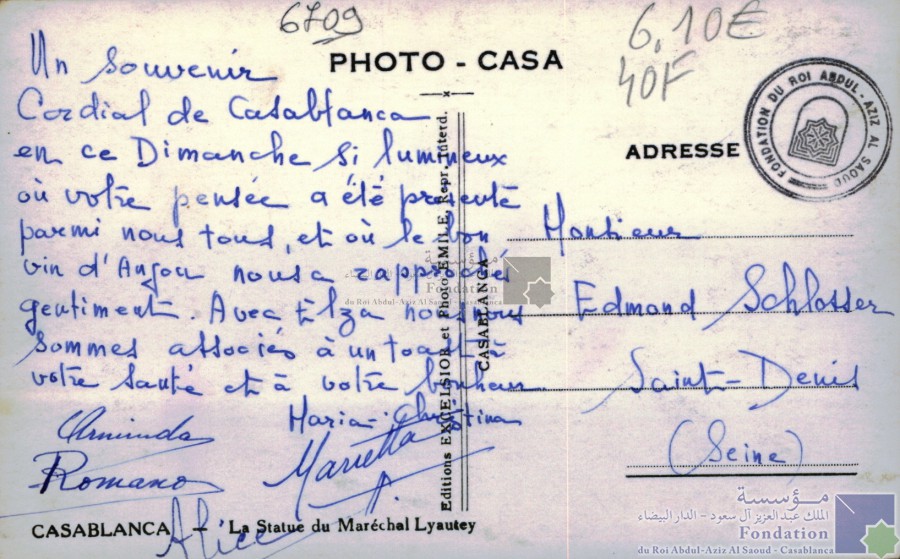 6709
6,10€
40F
PHOTO - CASA
Un souvenir
Cordial de Casablanca
en ce Dimanche si lumineux
où votre pensée a été présente
parmi nous tous, et où le bon
vin d'Anjou nous a rapprochés
gentiment. Avec Elza nous nous
sommes associés à un toast à
votre santé et à votre bonheur
Maria-Christina
Arminda
Marietta
Romano
Alice
ADRESSE
Monsieur
Edmond Schlosser
Saint-Denis
(Seine)
Editions EXCELSIOR et Photo EMILE, Repr. interd.
CASABLANCA
CASABLANCA - La Statue du Maréchal Lyautey
FONDATION DU ROI ABDUL-AZIZ AL SAOUD
مؤسسة
Fondation
du Roi Abdul-Aziz Al Saoud - Casablanca
مؤسسة
الملك عبد العزيز آل سعود - الدار البيضاء
Fondation
du Roi Abdul-Aziz Al Saoud - Casablanca